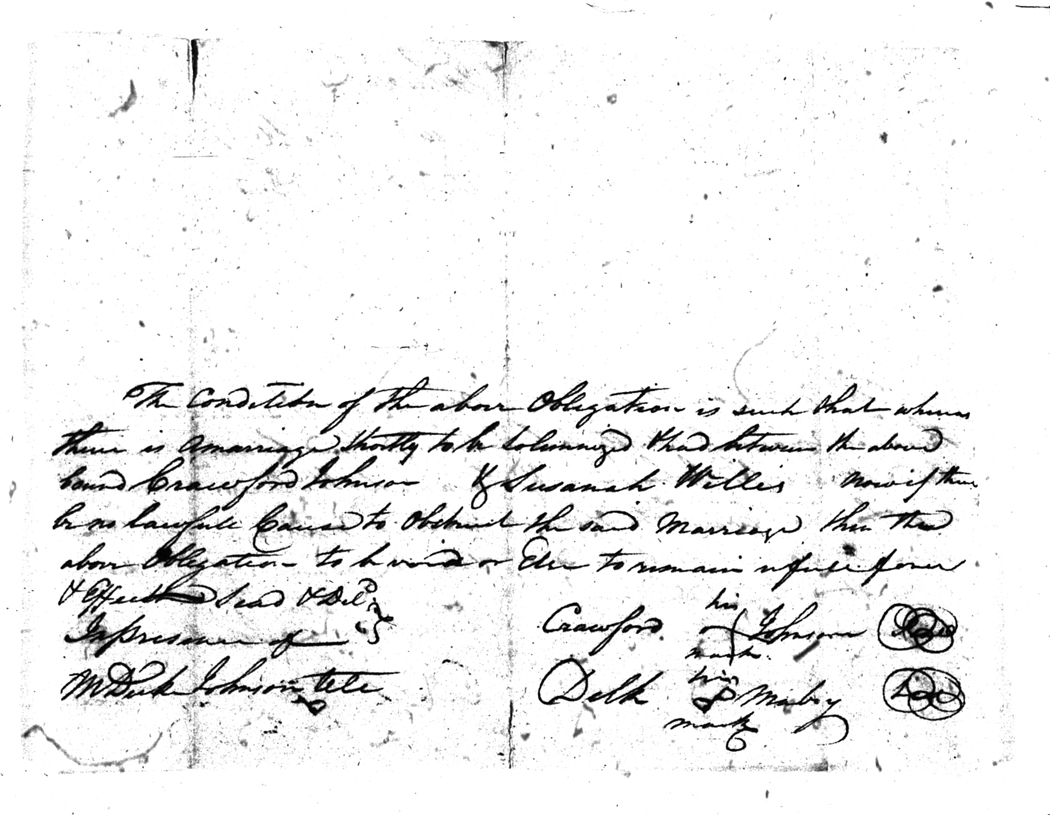 The Condition of the above Obligation is such that whereas
there is a marriage Shortly to be Solemnized & had between the above
bound Crawford Johnson & Susanah Willis now if there
be no lawfull Cause to Obstruct the said Marriage then the
above Obligation to be void or Else to remain in full force
& Effect Seald & Deld
In presence of
M Duk Johnson
Crawford his mark Johnson Seal
Delk his mark Mabry Seal